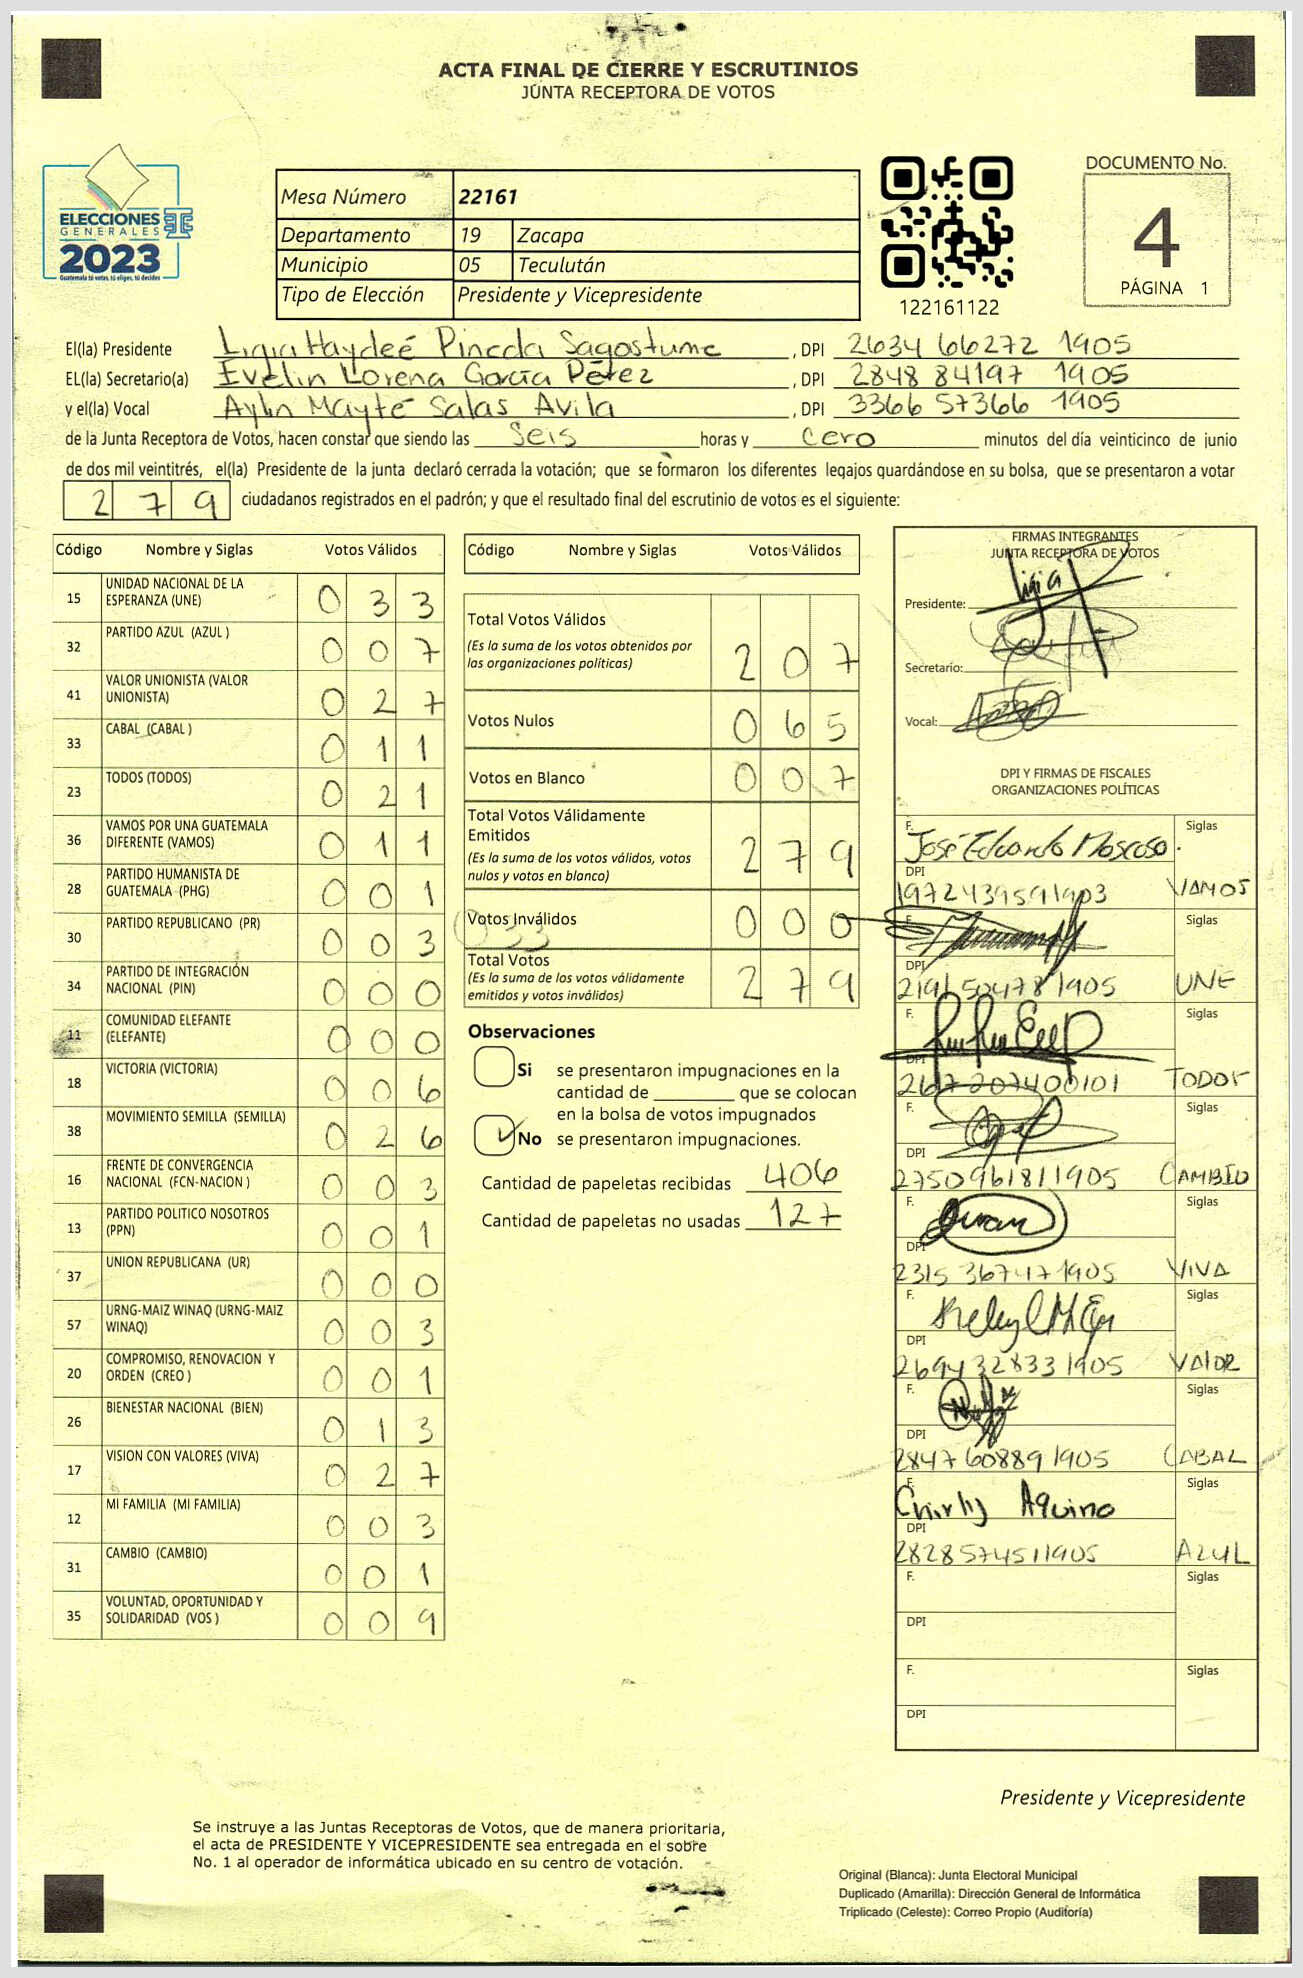 ACTA FINAL DE CIERRE Y ESCRUTINIOS
JUNTA RECEPTORA DE VOTOS
ELECCIONES
GENERALES
2023
Guatemala tú votas, tú eliges, tú decides
Mesa Número 22161
Departamento 19 Zacapa
Municipio 05 Teculután
Tipo de Elección Presidente y Vicepresidente
122161122
DOCUMENTO No.
4
PÁGINA 1
El(la) Presidente Ligia Haydeé Pineda Sagostume , DPI 2634 66272 1905
EL(la) Secretario(a) Evelin Lorena García Pérez , DPI 2848 84197 1905
y el(la) Vocal Aylin Mayté Salas Avila , DPI 3366 57366 1905
de la Junta Receptora de Votos, hacen constar que siendo las Seis horas y Cero minutos del día veinticinco de junio
de dos mil veintitrés, el(la) Presidente de la junta declaró cerrada la votación; que se formaron los diferentes legajos quardándose en su bolsa, que se presentaron a votar
279 ciudadanos registrados en el padrón; y que el resultado final del escrutinio de votos es el siguiente:
Código Nombre y Siglas Votos Válidos
15 UNIDAD NACIONAL DE LA ESPERANZA (UNE) 033
32 PARTIDO AZUL (AZUL ) 007
41 VALOR UNIONISTA (VALOR UNIONISTA) 027
33 CABAL (CABAL ) 011
23 TODOS (TODOS) 021
36 VAMOS POR UNA GUATEMALA DIFERENTE (VAMOS) 011
28 PARTIDO HUMANISTA DE GUATEMALA (PHG) 001
30 PARTIDO REPUBLICANO (PR) 003
34 PARTIDO DE INTEGRACIÓN NACIONAL (PIN) 000
11 COMUNIDAD ELEFANTE (ELEFANTE) 000
18 VICTORIA (VICTORIA) 006
38 MOVIMIENTO SEMILLA (SEMILLA) 026
16 FRENTE DE CONVERGENCIA NACIONAL (FCN-NACION ) 003
13 PARTIDO POLITICO NOSOTROS (PPN) 001
37 UNION REPUBLICANA (UR) 000
57 URNG-MAIZ WINAQ (URNG-MAIZ WINAQ) 003
20 COMPROMISO, RENOVACION Y ORDEN (CREO ) 001
26 BIENESTAR NACIONAL (BIEN) 013
17 VISION CON VALORES (VIVA) 027
12 MI FAMILIA (MI FAMILIA) 003
31 CAMBIO (CAMBIO) 001
35 VOLUNTAD, OPORTUNIDAD Y SOLIDARIDAD (VOS ) 009
Código Nombre y Siglas Votos Válidos
Total Votos Válidos 207
(Es la suma de los votos obtenidos por
las organizaciones políticas)
Votos Nulos 065
Votos en Blanco 007
Total Votos Válidamente
Emitidos 279
(Es la suma de los votos válidos, votos
nulos y votos en blanco)
Votos Inválidos 000
033
Total Votos 279
(Es la suma de los votos válidamente
emitidos y votos inválidos)
Observaciones
Si se presentaron impugnaciones en la
cantidad de ________ que se colocan
en la bolsa de votos impugnados
No se presentaron impugnaciones.
Cantidad de papeletas recibidas 406
Cantidad de papeletas no usadas 127
FIRMAS INTEGRANTES
JUNTA RECEPTORA DE VOTOS
Presidente: Ligia
Secretario:
Vocal:
DPI Y FIRMAS DE FISCALES
ORGANIZACIONES POLÍTICAS
F. José Eduardo Moscoso. Siglas
DPI
1972439591903 VAMOS
F. Siglas
DPI
2191504781905 UNE
F. Siglas
DPI
2617207400101 TODOS
F. Siglas
DPI
2750961811905 CAMBIO
F. Siglas
DPI
2315367471905 VIVA
F. Siglas
DPI
2694328331905 VALOR
F. Siglas
DPI
2847608891905 CABAL
F. Siglas
Chirly Aquino
DPI
2828574511905 AZUL
F. Siglas
DPI
F. Siglas
DPI
Presidente y Vicepresidente
Se instruye a las Juntas Receptoras de Votos, que de manera prioritaria,
el acta de PRESIDENTE Y VICEPRESIDENTE sea entregada en el sobre
No. 1 al operador de informática ubicado en su centro de votación.
Original (Blanca): Junta Electoral Municipal
Duplicado (Amarilla): Dirección General de Informática
Triplicado (Celeste): Correo Propio (Auditoría)